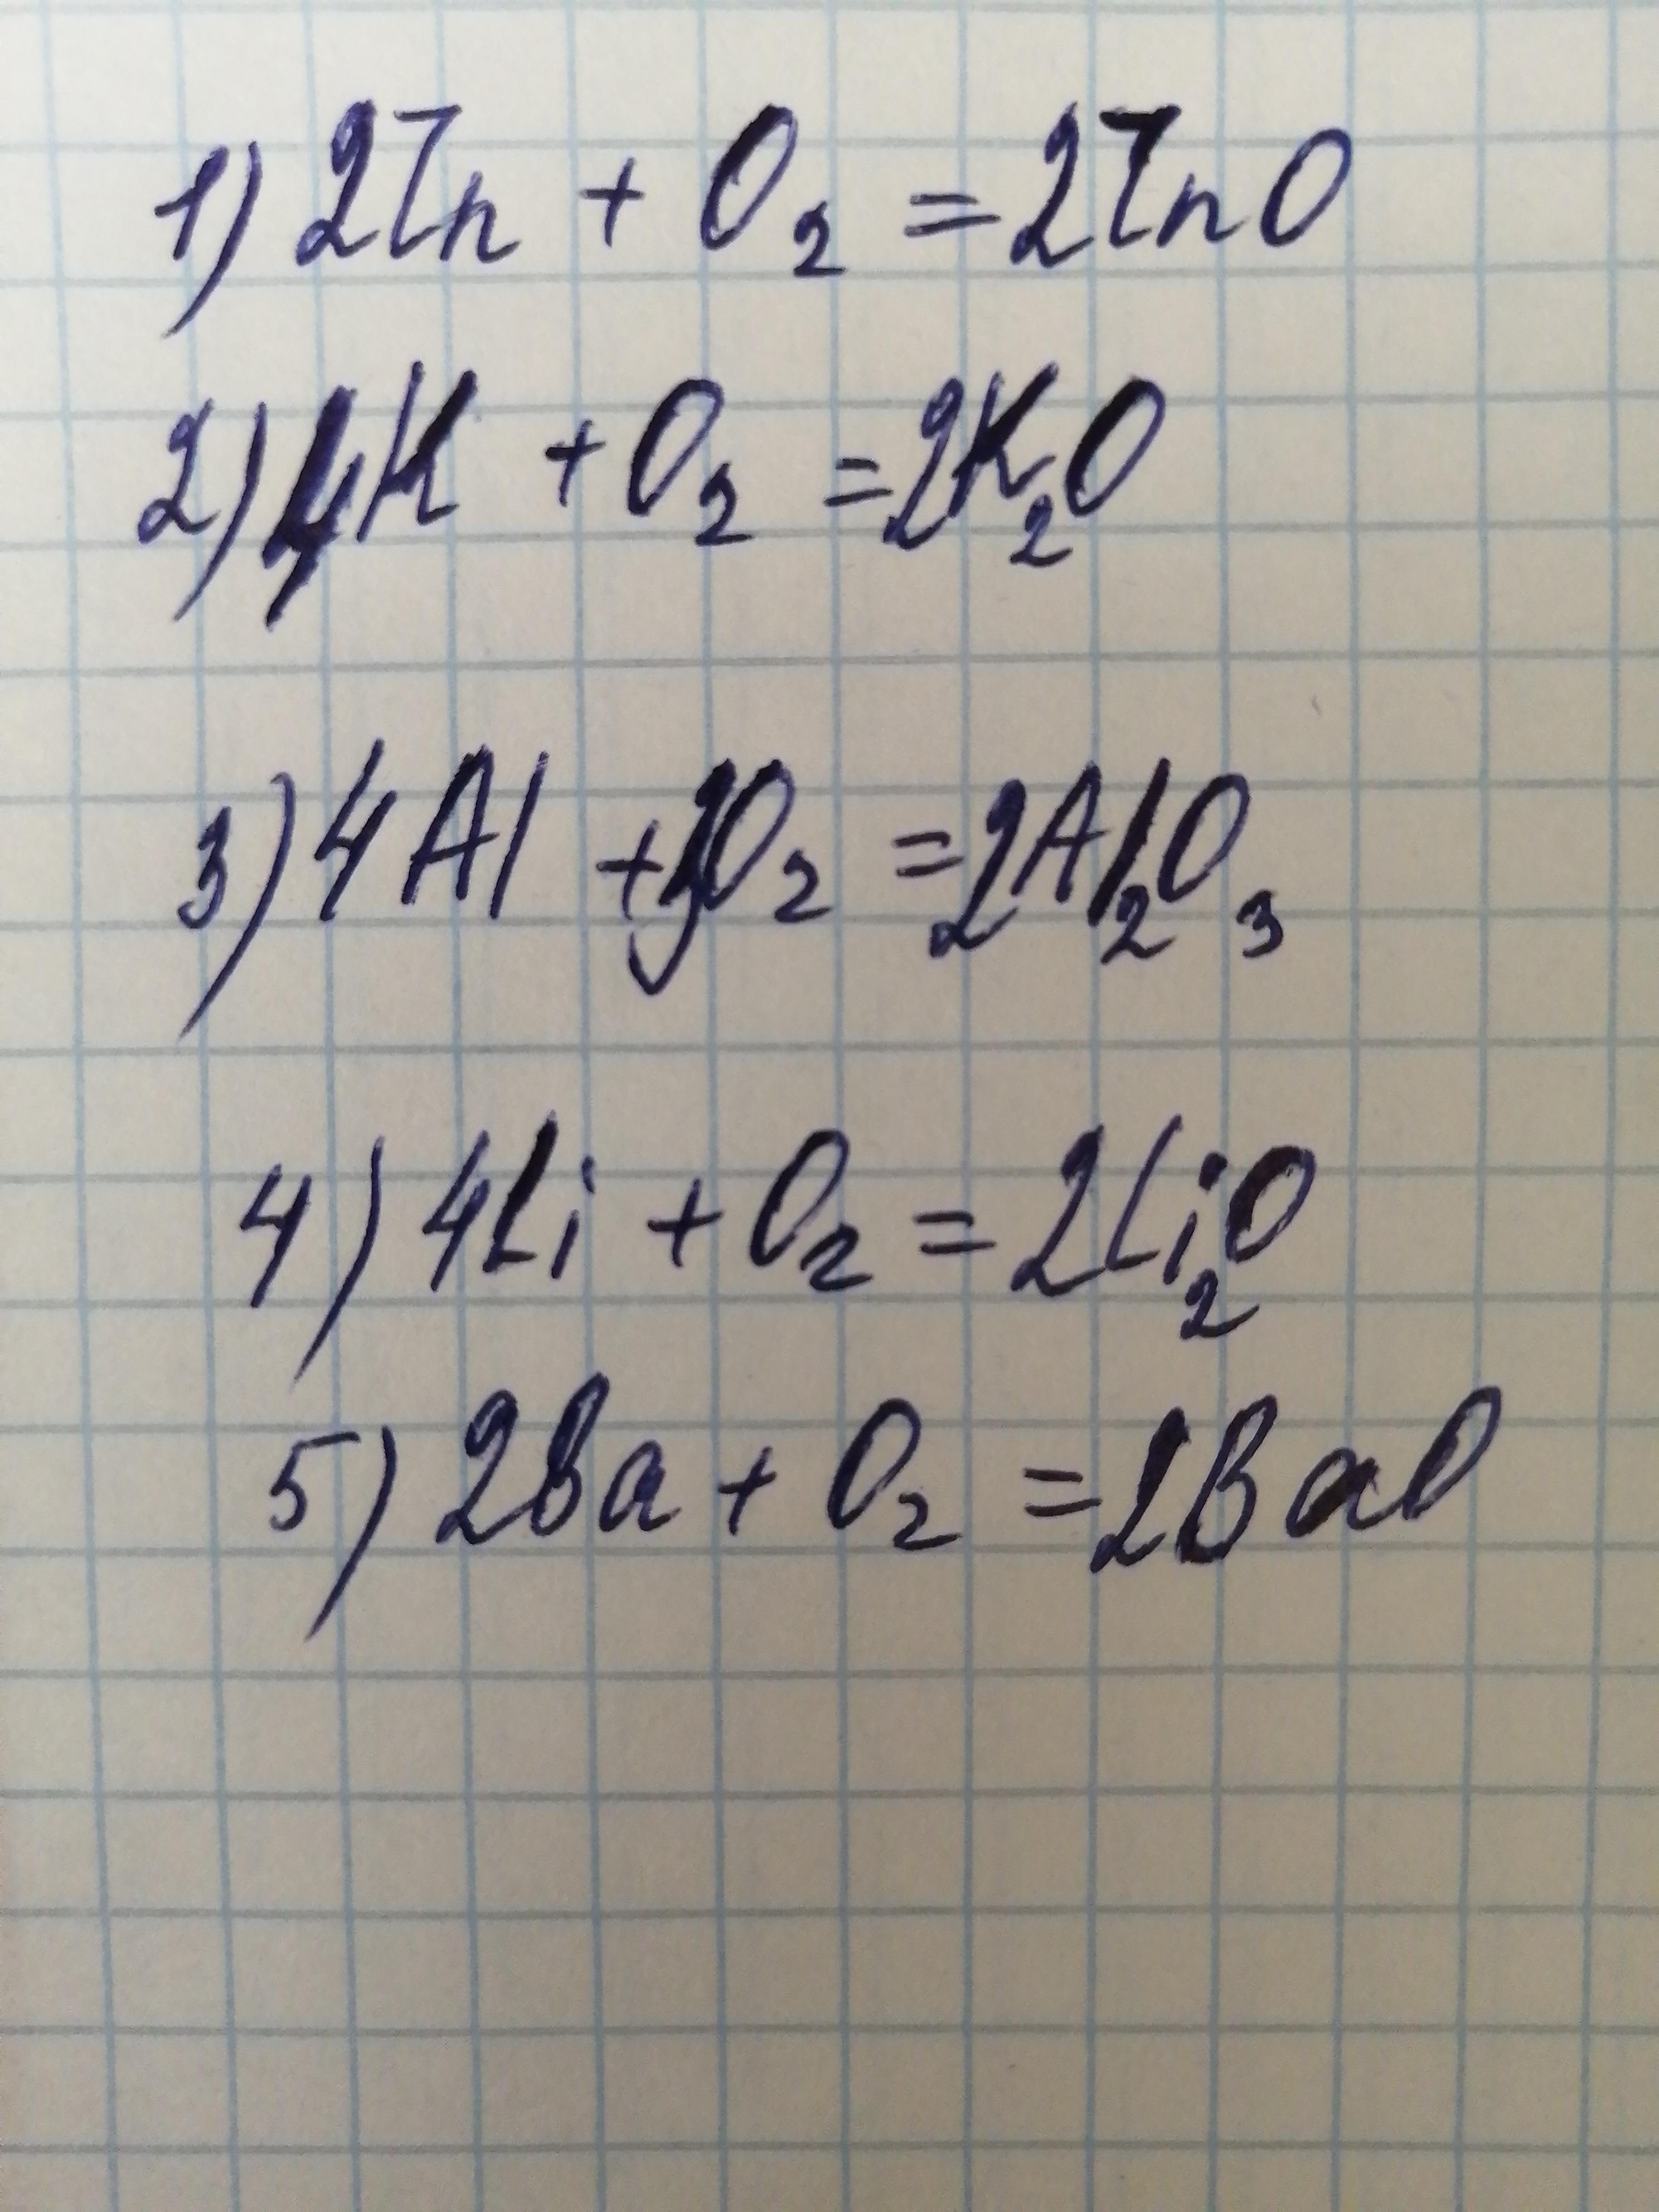 1) 2Zn + O₂ = 2ZnO
2) 4K + O₂ = 2K₂O
3) 4Al + 3O₂ = 2Al₂O₃
4) 4Li + O₂ = 2Li₂O
5) 2Ba + O₂ = 2BaO